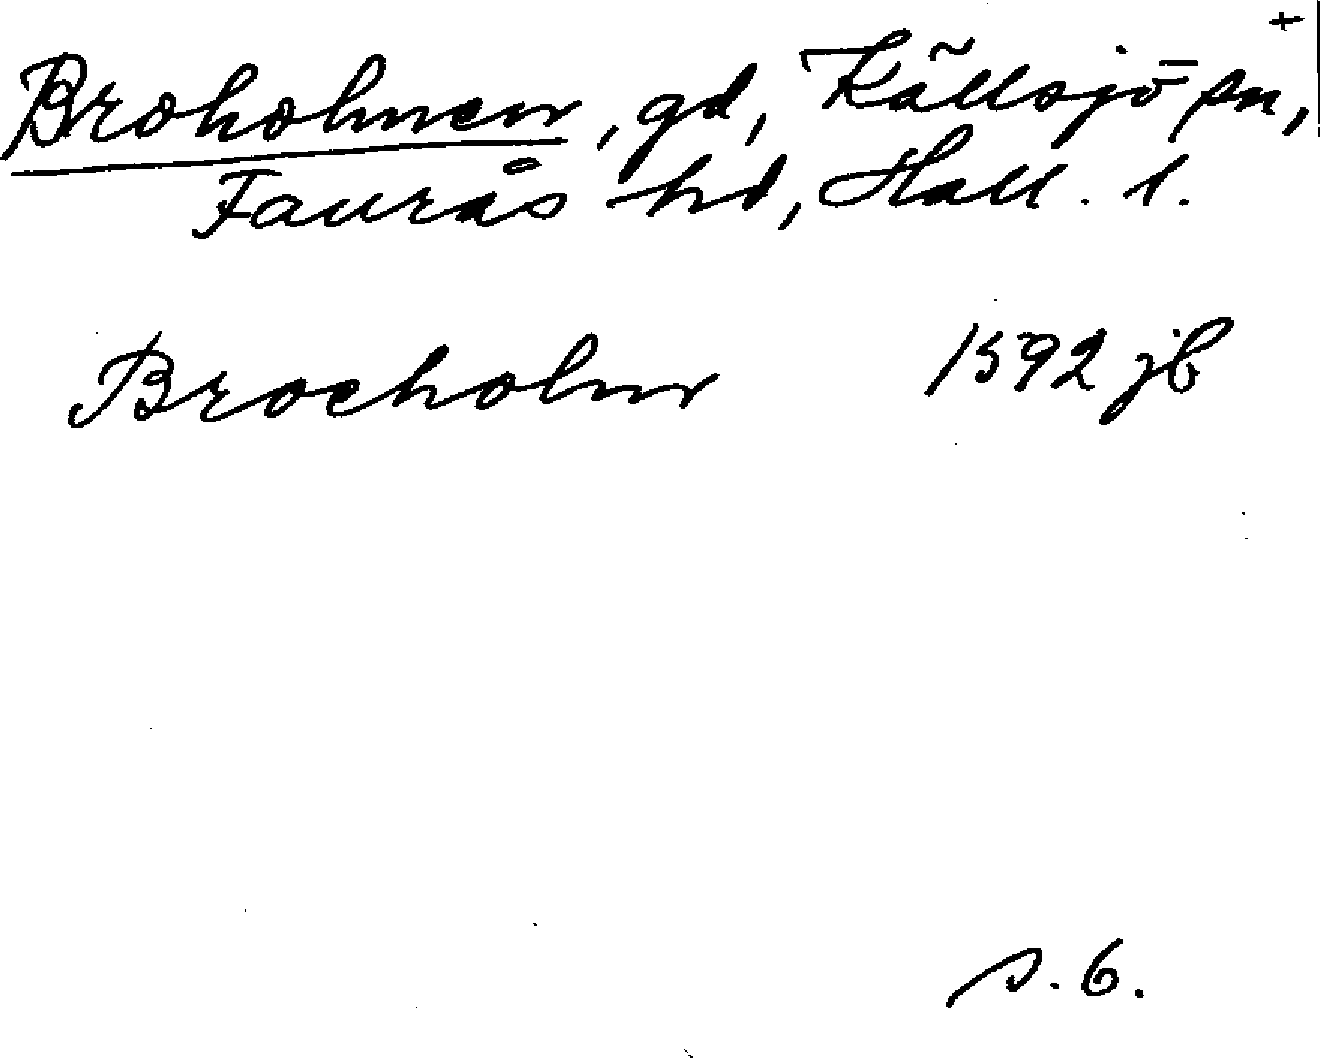 +
Broholmen, gd, Källsjö sn,
Faurås hd, Hall. l.
Broeholm 1592 jb
s. 6.